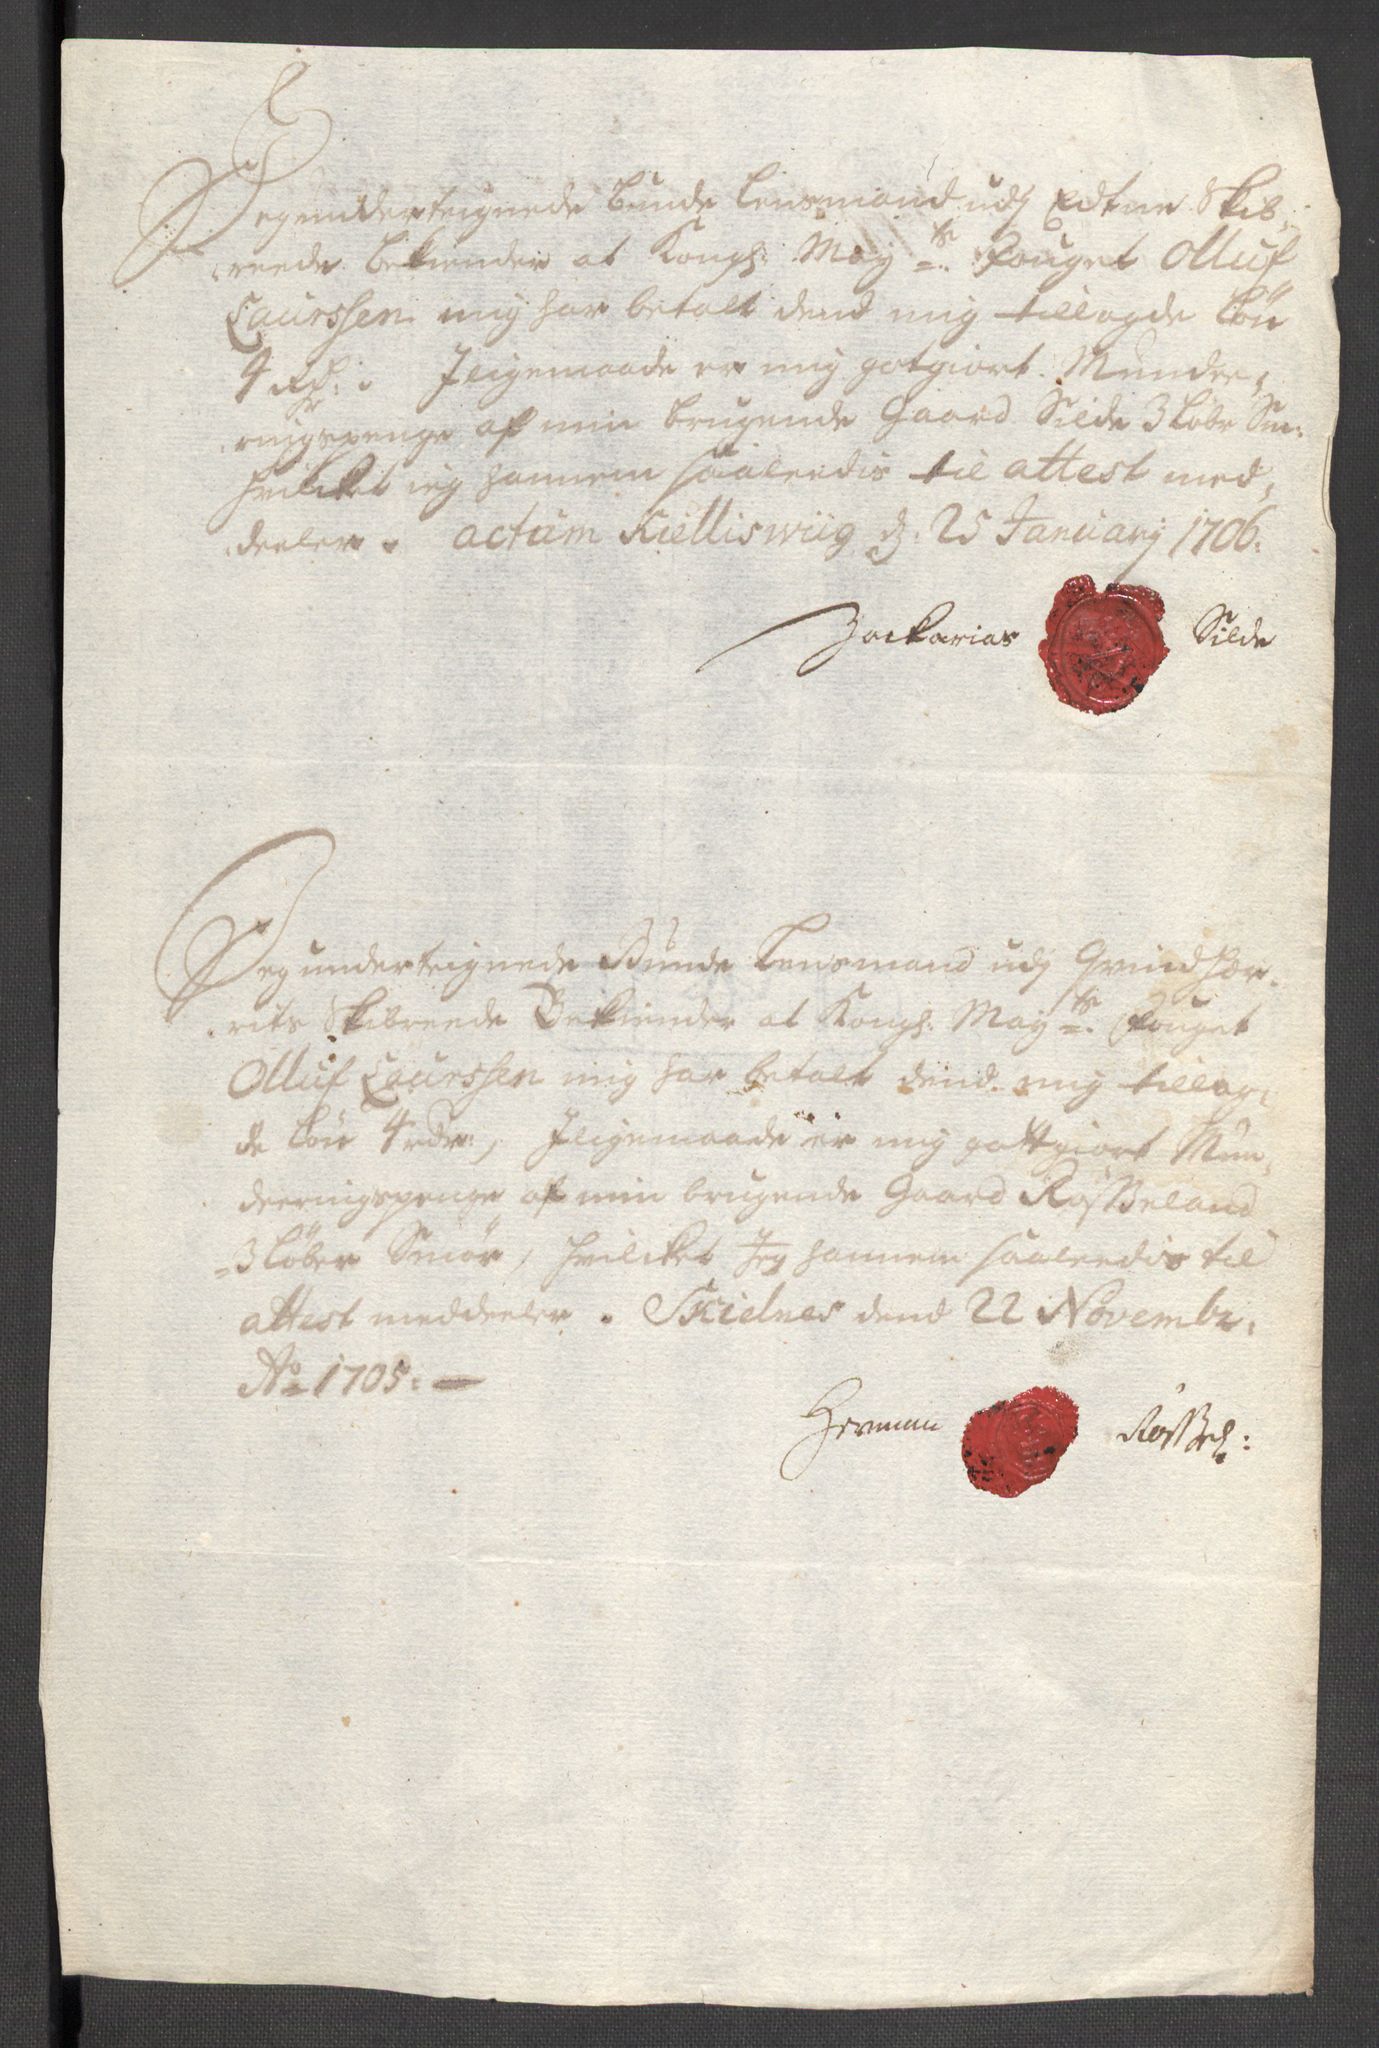 Jeg underteignede Bunde Lensmand udj Edtne Skib,
reede bekiender at Kongh: May ts: Fouget Olluf
Laurssen mig har betalt dend mig tillagde Løn
4 Rd: Jligemaade er mig gotgiort Munde,
ringspenge af min brugende Gaard Silde 3 Løbr Smr:
hvilcket ieg hannem saaleedis til attest med,
deeler. actum Kielliswiig d: 25 January 1706.
Zackarias Silde
Jeg underteignede Bunde Lensmand udj Qvindhær,
rits Skibreede Bekiender at Kongh: May ts: Fouget
Olluf Laurssen mig har betalt dend mig tillag,
de Løn 4 rdr:, Jligemaade er mig gottgiort Mun,
deeringspenge af min brugende Gaard Røsseland
3 Løber Smør, hvilcket Jeg hannem saaleedis til
attest meddeeler. Skielnes dend 22 Novembr.
Ao 1705.
Herman Røssel: